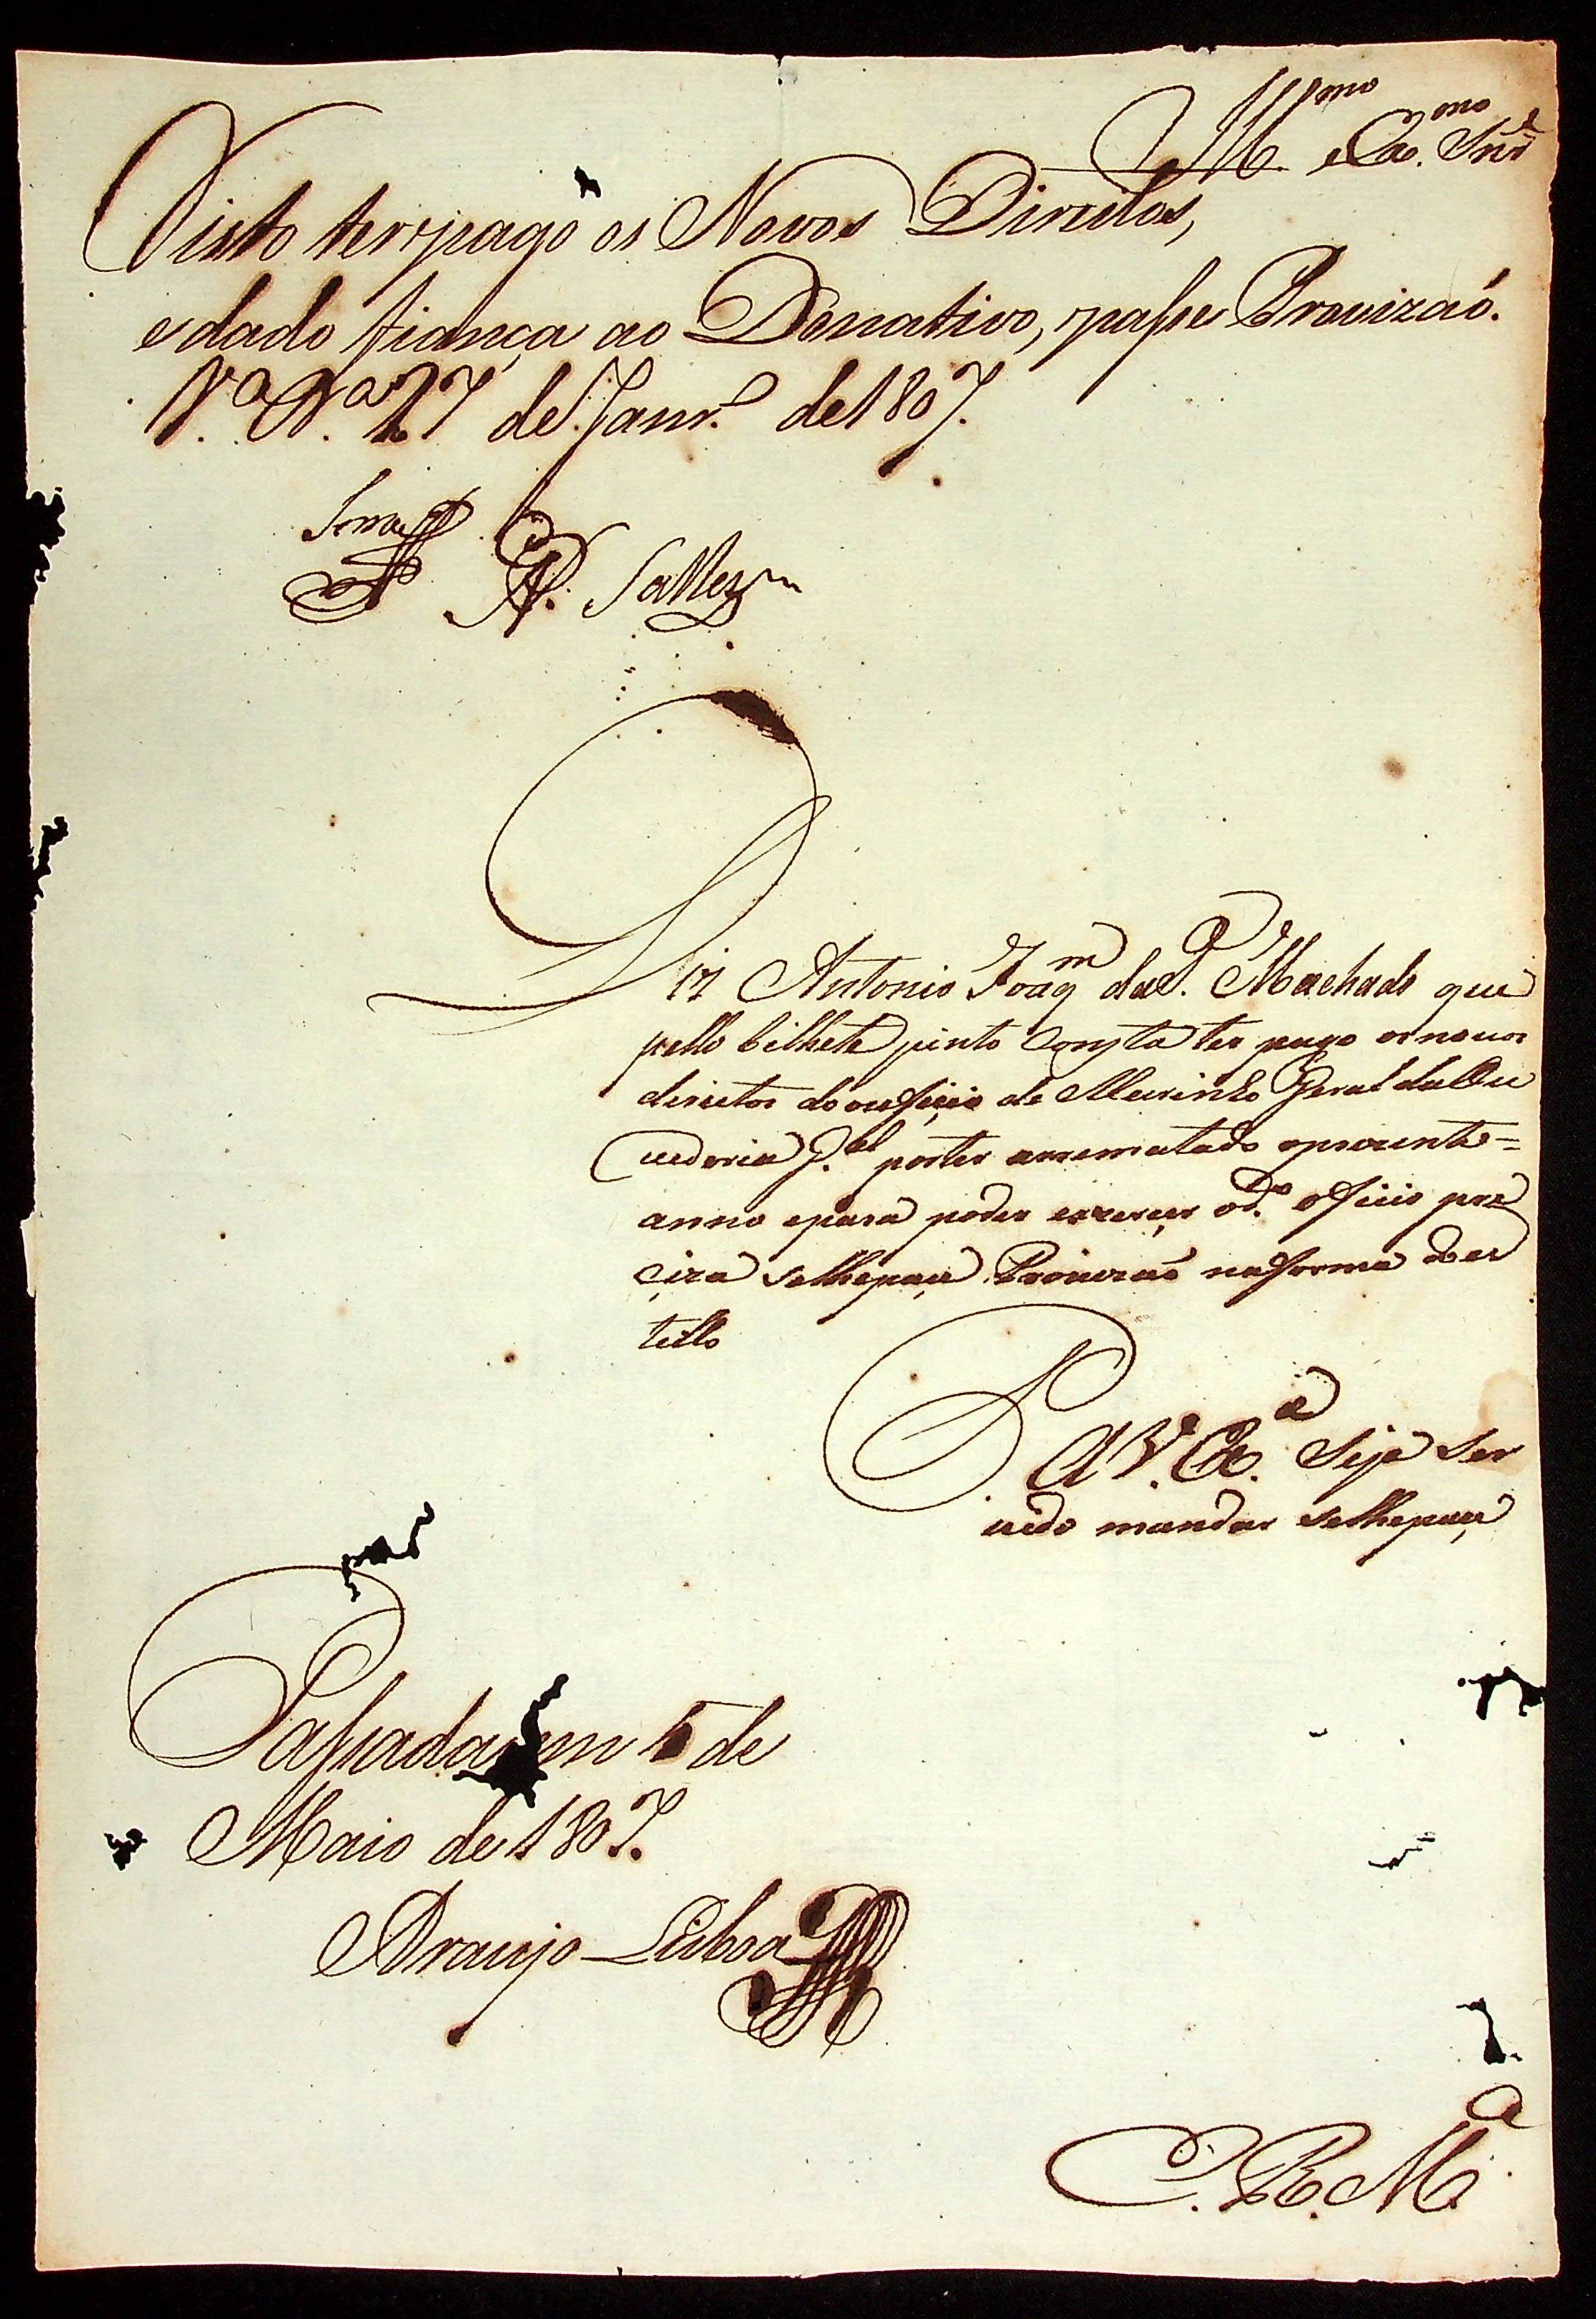 Ill.mo e Ex.mo Snr.
Visto ter pago os Novos Direitos,
e dado fiança ao Donativo, passe Provizaõ.
V.a B.a 27 de Janr.o de 1807.
Salles
Diz Antonio Joaq.m da S.a Machado que
pello bilhete junto consta ter pago os nouos
direitos do ouficio de Meirinho Geral da Ou
uedoria p.r ter arrematado o prezente
anno e para poder exzerçer o d.o oficio pre
ciza se lhe paçe Prouizaõ na forma do es
tillo
P. A V. Ex.a Seja Ser
uido mandar se lhe paçe
Passada em 5 de
Maio de 1807.
Araujo Lisboa
E. R. M.ce